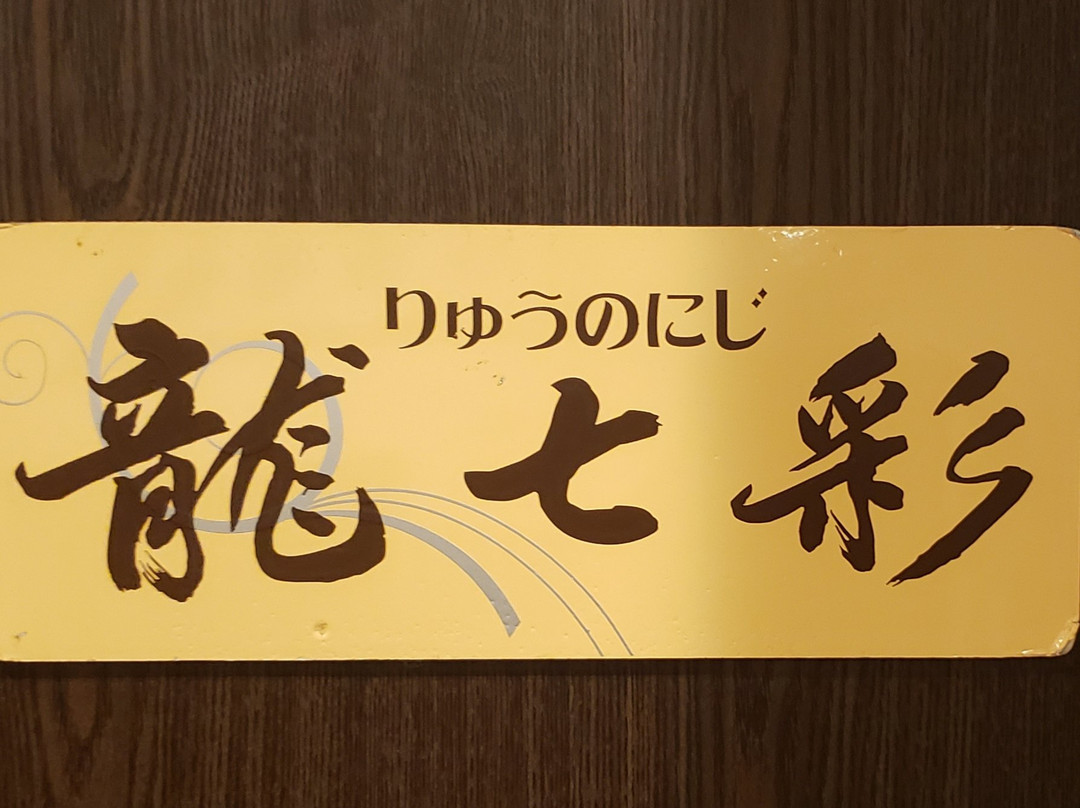 りゅうのにじ
龍七彩